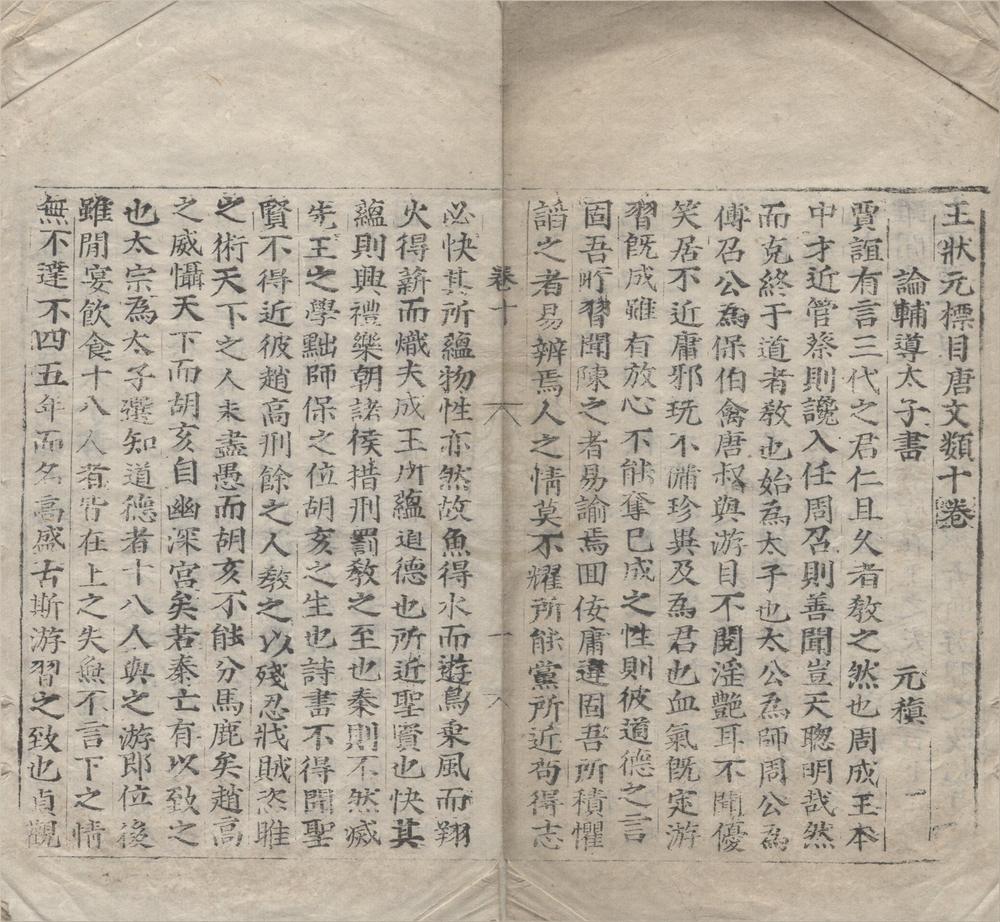 王狀元標目唐文類十卷
論輔導太子書 元稹
賈誼有言三代之君仁且久者教之然也周成王本
中才近管蔡則讒入任周召則善聞豈天聰明哉然
而克終于道者教也始為太子也太公為師周公為
傅召公為保伯禽唐叔與游目不閱淫艷耳不聞優
笑居不近庸邪玩不備珍異及為君也血氣既定游
習既成雖有放心不能奪已成之性則彼道德之言
固吾所習聞陳之者易諭焉回佞庸違固吾所積懼
謟之者易辨焉人之情莫不耀所能黨所近苟得志
卷十
一
必快其所蘊物性亦然故魚得水而遊鳥乗風而翔
火得薪而熾夫成王所蘊道德也所近聖賢也快其
蘊則興禮樂朝諸侯措刑罰教之至也秦則不然滅
先王之學黜師保之位胡亥之生也詩書不得聞聖
賢不得近彼趙高刑餘之人教之以殘忍戕賊恣睢
之術天下之人未盡愚而胡亥不能分馬鹿矣趙高
之威懾天下而胡亥自幽深宮矣若秦亡有以致之
也太宗為太子選知道德者十八人與之游即位後
雖閒宴飲食十八人者皆在上之失無不言下之情
無不達不四五年而名高盛古斯游習之致也貞觀